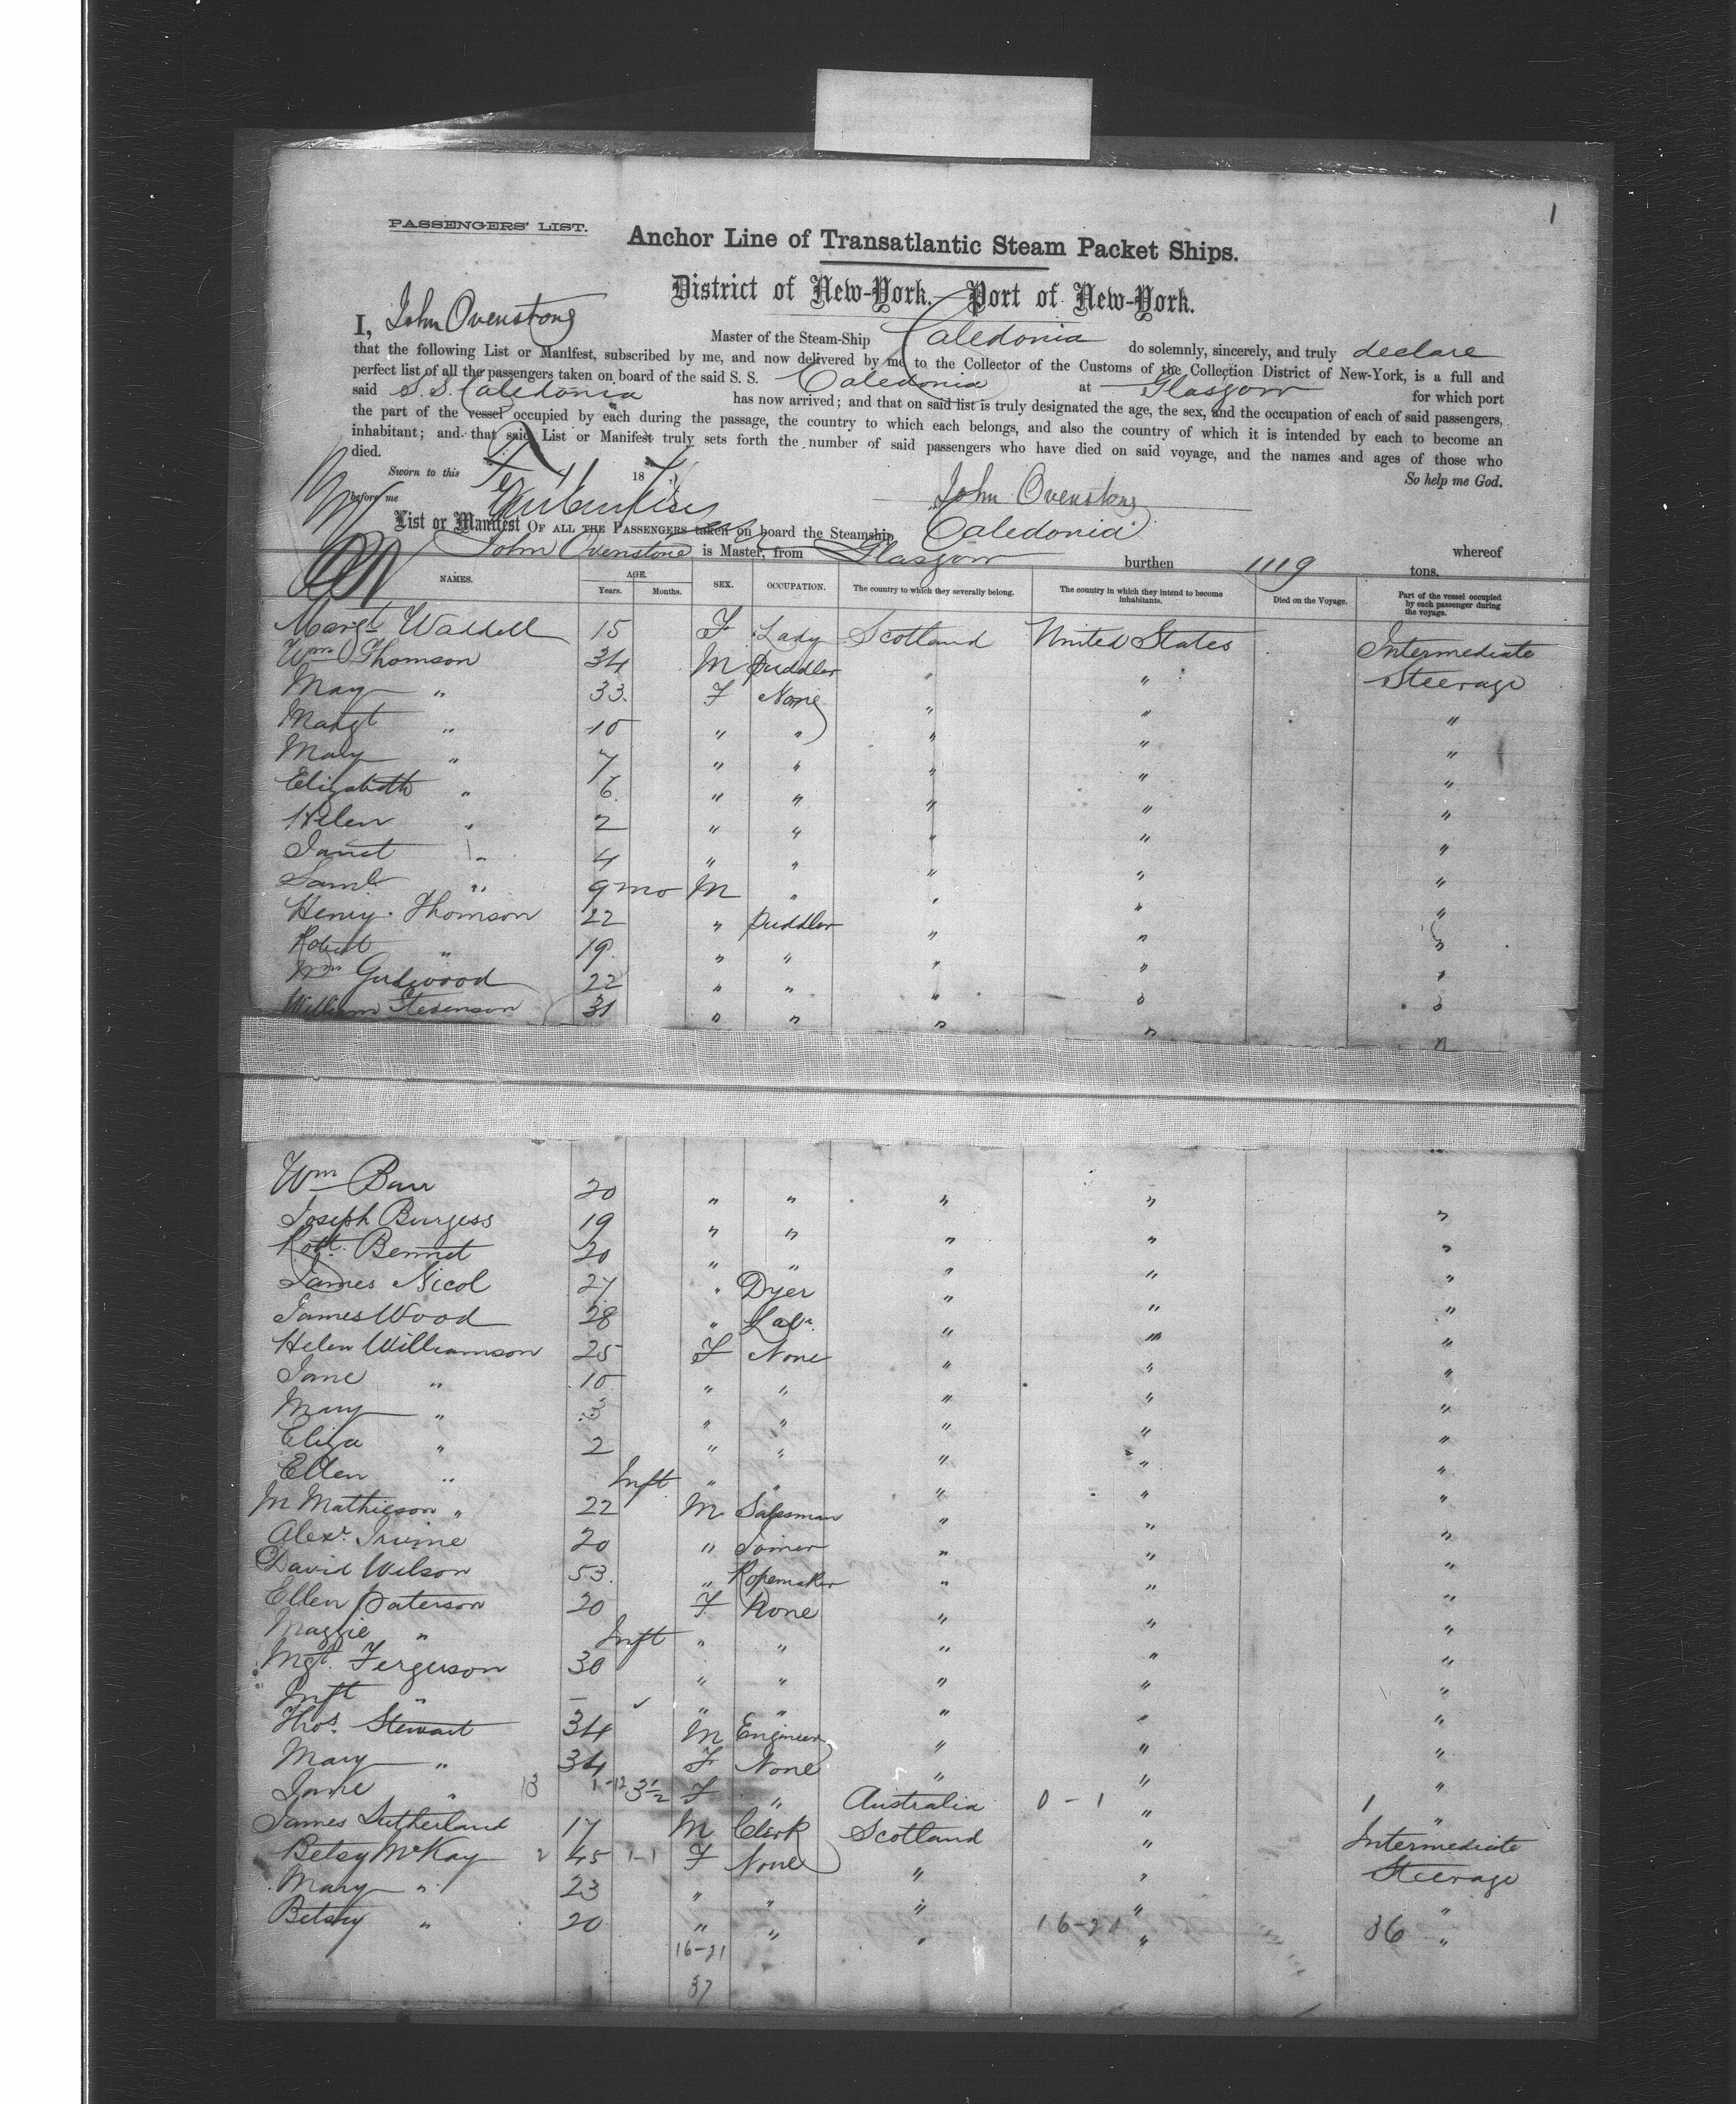 1
PASSENGERS' LIST.
Anchor Line of Transatlantic Steam Packet Ships.
District of New-York.—Port of New-York.
I, John Ovenstone Master of the Steam-Ship Caledonia do solemnly, sincerely, and truly declare
that the following List or Manifest, subscribed by me, and now delivered by me to the Collector of the Customs of the Collection District of New-York, is a full and
perfect list of all the passengers taken on board of the said S. S. Caledonia at Glasgow for which port
said S. S. Caledonia has now arrived; and that on said list is truly designated the age, the sex, and the occupation of each of said passengers,
the part of the vessel occupied by each during the passage, the country to which each belongs, and also the country of which it is intended by each to become an
inhabitant; and that said List or Manifest truly sets forth the number of said passengers who have died on said voyage, and the names and ages of those who
died.
So help me God.
Sworn to this 187
before me
John Ovenstone
List or Manifest OF ALL THE PASSENGERS taken on board the Steamship Caledonia whereof
John Ovenstone is Master, from Glasgow burthen 1119 tons.
NAMES. AGE. Years. Months. SEX. OCCUPATION. The country to which they severally belong. The country in which they intend to become inhabitants. Died on the Voyage. Part of the vessel occupied by each passenger during the voyage.
Margt Waddell 15 F Lady Scotland United States Intermediate
Wm Thomson 34 M Puddler " " Steerage
May " 33 F None " " "
Margt " 10 " " " " "
Mary " 7 " " " " "
Elizabeth " 6 " " " " "
Helen " 2 " " " " "
Janet " 4 " " " " "
Saml " 9 mo M " " " "
Henry Thomson 22 " Puddler " " "
Robert " 19 " " " " "
Wm Girdwood 22 " " " " "
William Stevenson 31 " " " " "
Wm Barr 20 " " " " "
Joseph Burgess 19 " " " " "
Robt. Bennet 20 " " " " "
James Nicol 27 " Dyer " " "
James Wood 28 " Labr. " " "
Helen Williamson 25 F None " " "
Jane " 10 " " " " "
Mary " 3 " " " " "
Eliza " 2 " " " " "
Ellen " Inft " " " " "
M Mathieson " 22 M Salesman " " "
Alexr. Irvine 20 " Joiner " " "
David Wilson 53 " Ropemaker " " "
Ellen Paterson 20 F None " " "
Maggie " Inft " " " " "
Mgt. Ferguson 30 " " " " "
Inft " – ✓ " " " " "
Thos. Stewart 34 M Engineer " " "
Mary " 34 F None " " "
Jane " 13 1-12 3½ F " Australia 0-1 " 1 "
James Sutherland 17 M Clerk Scotland " Intermediate
Betsy McKay 2 45 1-1 F None " " Steerage
Mary " 23 " " " " "
Betsey " 20 " " " 16-21 " 36 "
16-21
37